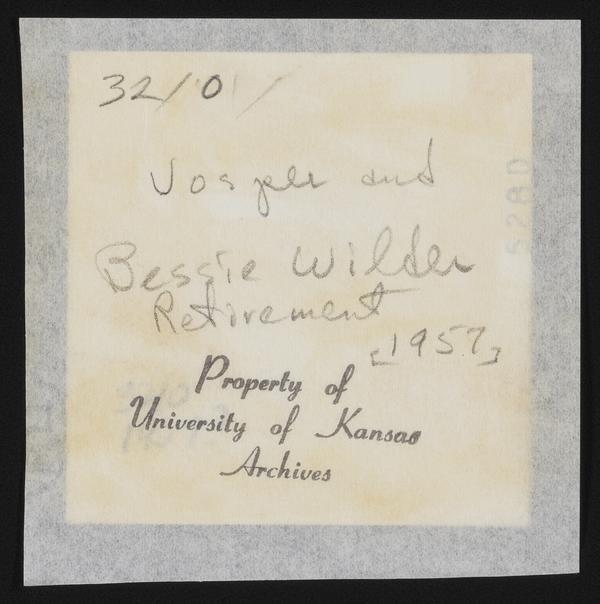 32/0/
Vosper and
Bessie Wilder
Retirement
[1957]
Property of
University of Kansas
Archives